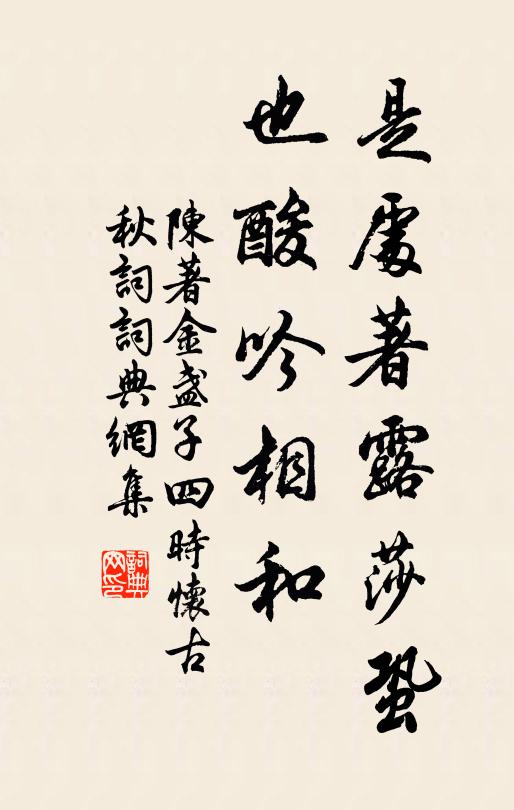 是處著露莎蛩
也酸吟相和
陳著金盞子四時懷古
秋詞詞典網集
詞典網印